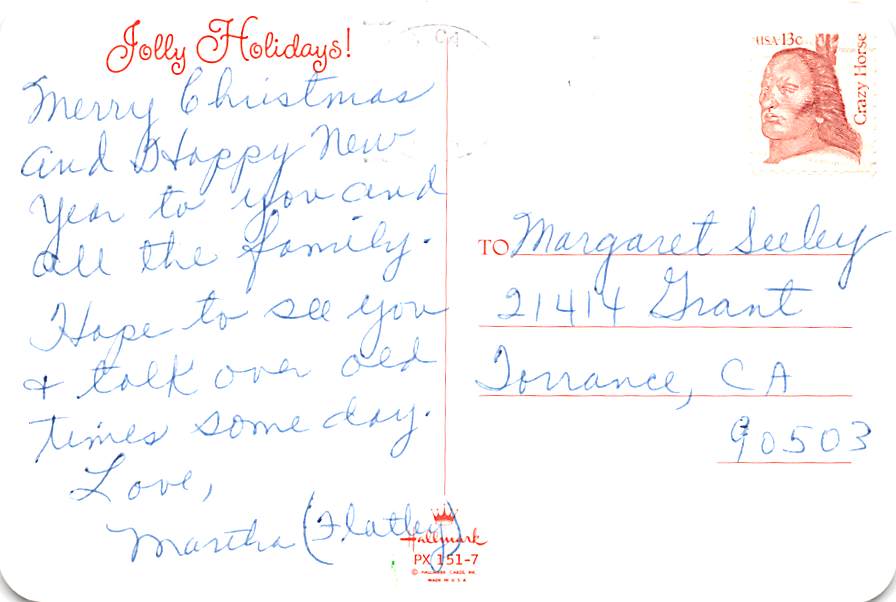 Jolly Holidays!
Merry Christmas
and Happy New
Year to you and
all the family.
Hope to see you
& talk over old
times some day.
Love,
Martha (Flatley)
USA 13c
Crazy Horse
TO Margaret Seeley
21414 Grant
Torrance, CA
90503
Hallmark
PX 151-7
© HALLMARK CARDS, INC.
MADE IN U.S.A.